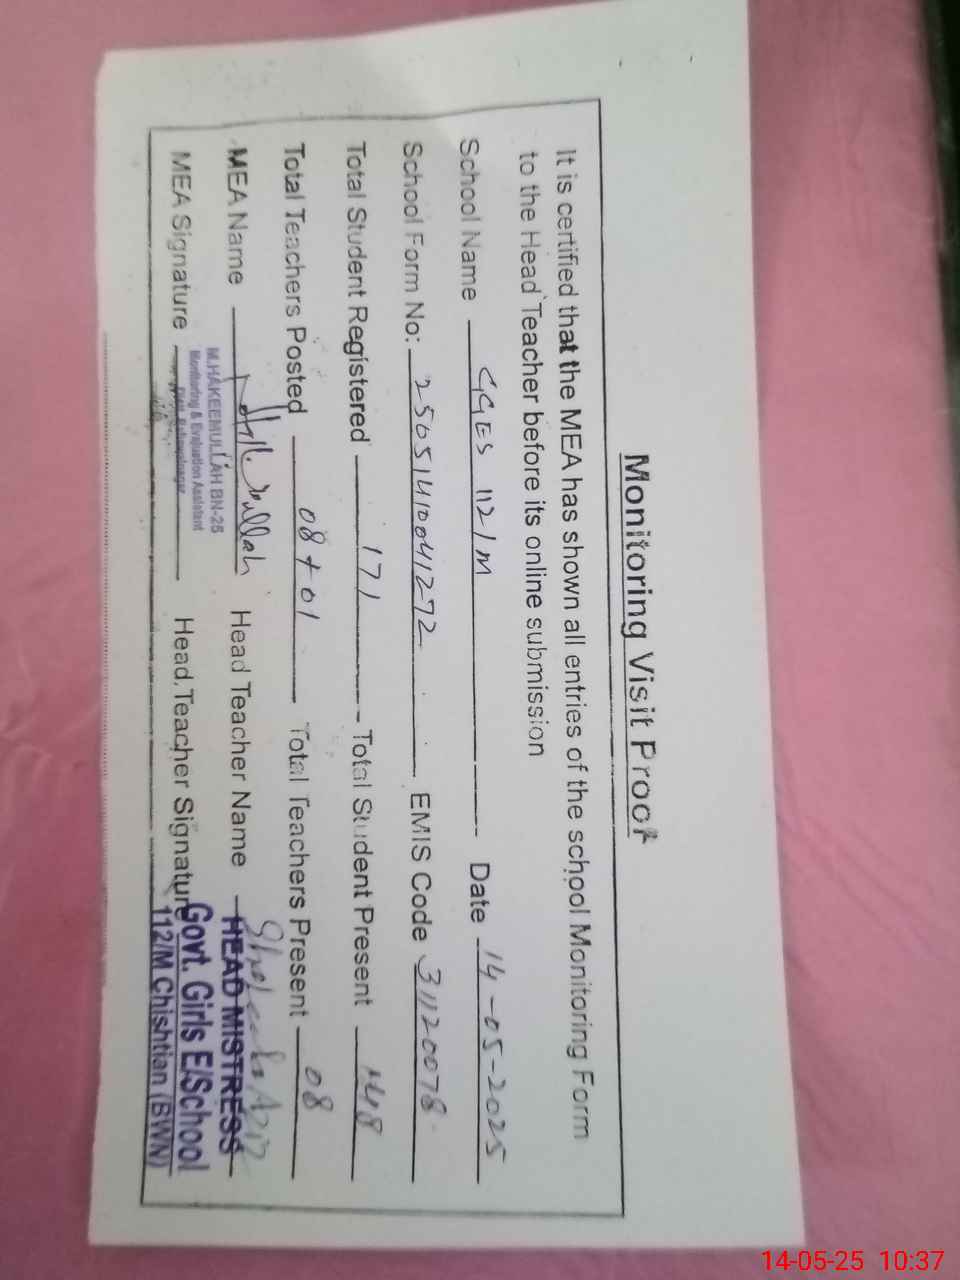 Monitoring Visit Proof
It is certified that the MEA has shown all entries of the school Monitoring Form
to the Head Teacher before its online submission
School Name GGES 112/M Date 14-05-2025
School Form No: 25051410041272 EMIS Code 31120078
Total Student Registered 171 Total Student Present 148
Total Teachers Posted 08+01 Total Teachers Present 08
MEA Name Head Teacher Name
HEAD MISTRESS
M.HAKEEMULLAH BN-25
Monitoring & Evaluation Assistant
MEA Signature Head Teacher Signature
Govt. Girls E/School
112/M Chishtian (BWN)
14-05-25 10:37